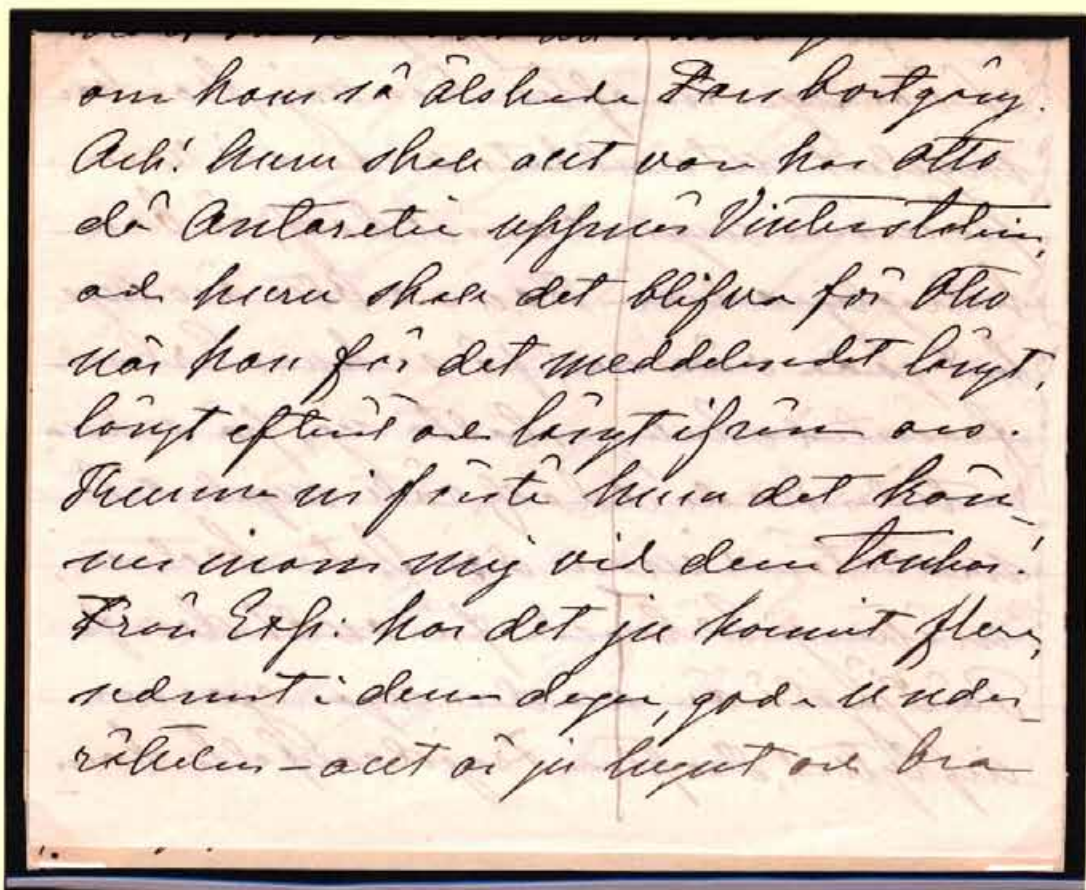 om hans så älskade Fars bortgång.
Ack! huru skall allt vara hos Otto
då Antarctic uppnår Vinterstation,
och huru skall det blifva för Otto
när han får det meddelandet långt,
långt efteråt och långt ifrån oss.
ni förstå huru det kän-
nes inom mig vid denna tanke!
Från Exp: har det ju kommit flera,
senast i dessa dagar, goda under-
rättelser – allt är ju lugnt och bra